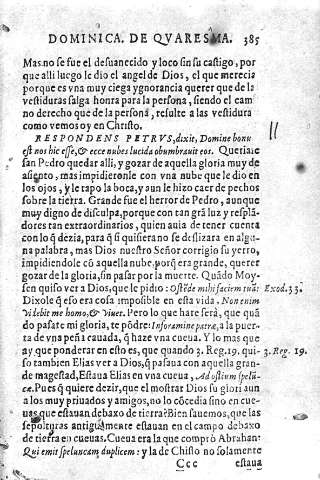 DOMINICA. DE QVARESMA. 385
Mas no se fue el desuanecido y loco sin su castigo, por
que alli luego le dio el angel de Dios, el que merecia
porque es vna muy ciega ygnorancia querer que de la
vestiduras salga honra para la persona, siendo el cami
no derecho que de la persona, resulte a las vestidura
como vemos oy en Christo.
RESPONDENS PETRVS, dixit, Domine bonũ
est nos hic esse, & ecce nubes lucida obumbrauit eos. Queria
san Pedro quedar alli, y gozar de aquella gloria muy de
assiento, mas impidieronle con vna nube que le dio en
los ojos, y le tapo la boca, y aun le hizo caer de pechos
sobre la tierra. Grande fue el herror de Pedro, aunque
muy digno de disculpa, porque con tan grã luz y respla
dores tan extraordinarios, quien auia de tener cuenta
con lo q̃ dezia, para q̃ si quisiera no se deslizara en algu
na palabra, mas Dios nuestro Señor corrigio su yerro,
impidiendole cõ aquella nube, porq̃ era grande, querer
gozar de la gloria, sin passar por la muerte. Quãdo Moy-
sen quiso ver a Dios, que le pidio: Ostẽde mihi faciem tuã: Exod. 33.
Dixole q̃ eso era cosa imposible en esta vida. Non enim
videbit me homo, & viuet. Pero lo que hare será, que quã
do pasare mi gloria, te põdre: In foramine petræ, a la puer
ta de vna peñ a cauada, q̃ haze vna cueua. Y lo mas que
ay que ponderar en esto es, que quando 3. Reg. 19. qui- 3. Reg. 19.
so tambien Elias ver a Dios, q̃ pasaua con aquella gran
de magestad, Estaua Elias en vna cueua, Ad ostium spelũ-
cæ. Pues q̃ quiere dezir, que el mostrar Dios su gloria aun
a los muy priuados y amigos, no lo cõcedia sino en cue-
uas, que estauan debaxo de tierra? Bien sauemos, que las
sepolturas antiguamente estauan en el campo debaxo
de tierra en cueuas. Cueua era la que comprò Abrahan:
Qui emit speluncam duplicem: y la de Christo no solamente
Ccc estaua